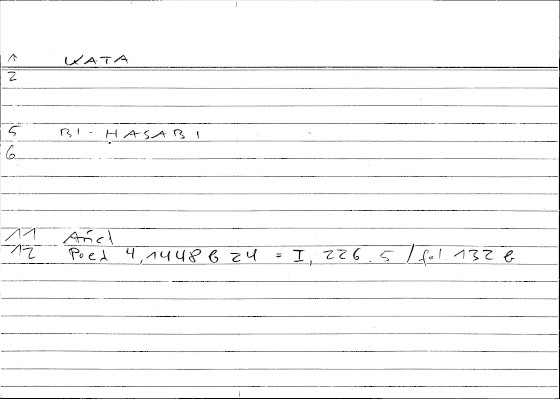 1 WATA
2
5 BI-ḤASABI
6
11
12 Poed 4,1448 B 24 = I, 226.5 / fol. 132 b